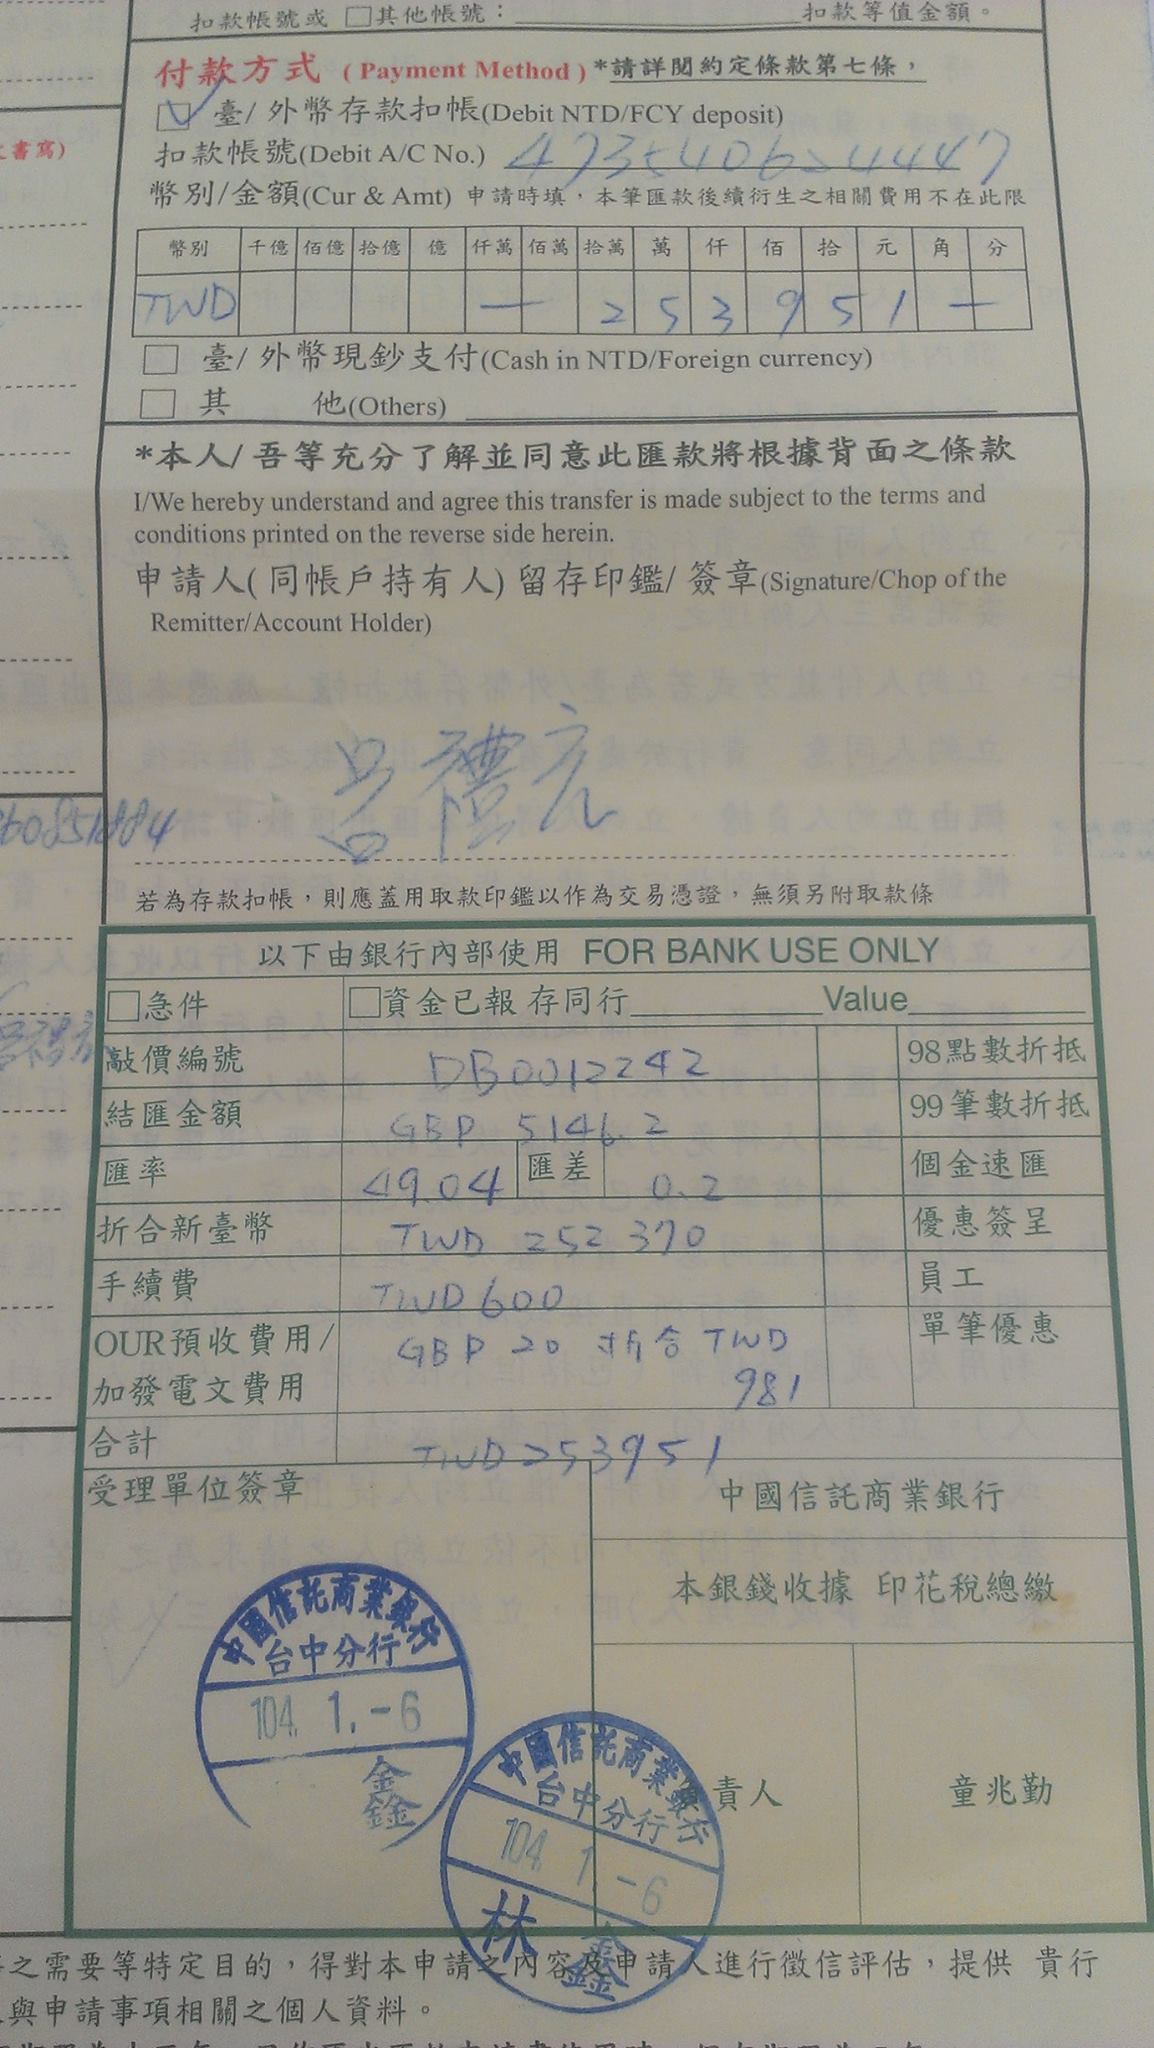 扣款帳號或 □其他帳號：扣款等值金額。
付款方式 ( Payment Method ) *請詳閱約定條款第七條，
☑ 臺/外幣存款扣帳(Debit NTD/FCY deposit)
文書寫)
扣款帳號(Debit A/C No.)
幣別/金額(Cur & Amt) 申請時填，本筆匯款後續衍生之相關費用不在此限
幣別 千億 佰億 拾億 億 仟萬 佰萬 拾萬 萬 仟 佰 拾 元 角 分
TWD — 2 5 3 9 5 1 —
□ 臺/外幣現鈔支付(Cash in NTD/Foreign currency)
□ 其 他(Others)
*本人/吾等充分了解並同意此匯款將根據背面之條款
I/We hereby understand and agree this transfer is made subject to the terms and
conditions printed on the reverse side herein.
申請人(同帳戶持有人)留存印鑑/簽章(Signature/Chop of the
Remitter/Account Holder)
呂禮宏
若為存款扣帳，則應蓋用取款印鑑以作為交易憑證，無須另附取款條
以下由銀行內部使用 FOR BANK USE ONLY
□急件 □資金已報 存同行 Value
敲價編號 DB0012242 98點數折抵
結匯金額 GBP 5146.2 99筆數折抵
匯率 49.04 匯差 0.2 個金速匯
折合新臺幣 TWD 252370 優惠簽呈
手續費 TWD 600 員工
OUR預收費用/ GBP 20 折合 TWD 單筆優惠
加發電文費用 981
合計 TWD 253951
受理單位簽章 中國信託商業銀行
本銀錢收據 印花稅總繳
中國信託商業銀行
台中分行
104. 1. -6
鑫
中國信託商業銀行
台中分行
104. 1 -6
林 鑫
責人 童兆勤
之需要等特定目的，得對本申請之內容及申請人進行徵信評估，提供 貴行
與申請事項相關之個人資料。